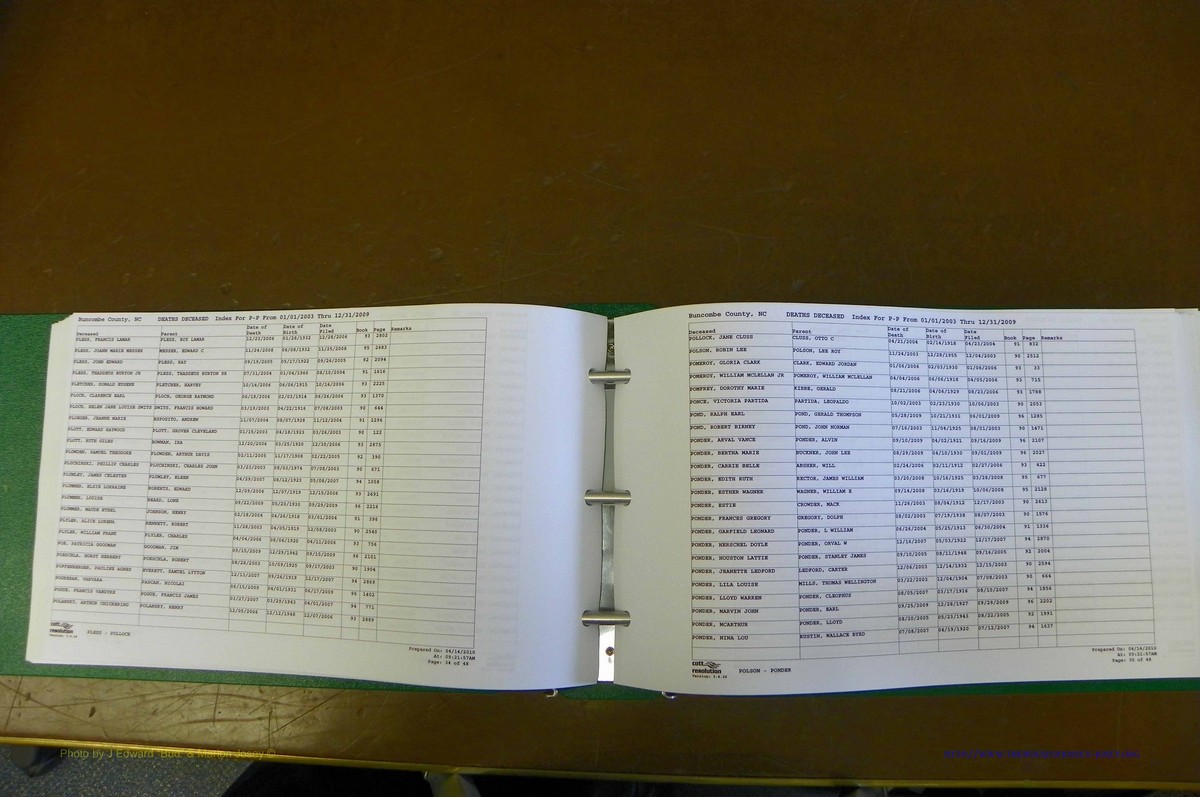 Buncombe County, NC DEATHS DECEASED Index For P-P From 01/01/2003 Thru 12/31/2009
Deceased Parent Date of Death Date of Birth Date Filed Book Page Remarks
PLESS, FRANCIS LAMAR PLESS, ROY LAMAR 12/23/2006 01/26/1932 12/28/2006 93 2802
PLESS, JOANN MARIE MESSER MESSER, EDWARD C 11/24/2008 11/25/2008 95 2683
PLESS, JOHN EDWARD PLESS, RAY 09/19/2005 05/17/1922 09/26/2005 92 2094
PLESS, THADDEUS BURTON JR PLESS, THADDEUS BURTON SR 07/31/2004 01/04/1960 08/10/2004 91 1616
PLETCHER, DONALD EUGENE PLETCHER, HARVEY 10/14/2006 06/06/1915 10/16/2006 93 2225
PLOCH, CLARENCE EARL PLOCH, GEORGE RAYMOND 06/18/2006 02/03/1914 06/26/2006 93 1370
PLOCH, HELEN JANE LOUISE SMITS SMITS, FRANCIS HOWARD 03/19/2003 04/22/1918 07/08/2003 90 644
PLONGER, JEANNE MARIE ESPOSITO, ANDREW 11/07/2004 08/07/1928 11/12/2004 91 2296
PLOTT, EDWARD HAYWOOD PLOTT, GROVER CLEVELAND 01/15/2003 04/18/1923 03/26/2003 90 122
PLOTT, RUTH GILES BOWMAN, IRA 12/20/2006 03/25/1920 12/30/2006 93 2875
PLOWDEN, SAMUEL THEODORE PLOWDEN, ARTHUR DAVIS 02/11/2005 11/17/1908 02/22/2005 92 390
PLUCHINSKI, PHILLIP CHARLES PLUCHINSKI, CHARLES JOHN 03/23/2003 08/03/1974 07/08/2003 90 671
PLUMLEY, JAMES CELESTER PLUMLEY, ELZEN 04/29/2007 08/12/1925 05/08/2007 94 1058
PLUMMER, ELSIE LORRAINE ROBERTS, EDWARD 12/09/2006 12/07/1919 12/15/2006 93 2691
PLUMMER, LOUISE BEARD, LONE 09/22/2009 05/25/1920 09/29/2009 96 2216
PLUMMER, MAUDE ETHEL JOHNSON, HENRY 02/18/2004 04/26/1918 03/01/2004 91 396
PLYLER, ALICE LORENA BENNETT, ROBERT 11/28/2003 04/05/1919 12/08/2003 90 2540
PLYLER, WILLIAM FRANK PLYLER, CHARLES 04/04/2006 08/06/1920 04/11/2006 93 756
POE, PATRICIA GOODMAN GOODMAN, JIM 09/15/2009 12/29/1942 09/15/2009 96 2101
POESCHLA, HORST HERBERT POESCHLA, ROBERT 08/28/2003 10/09/1925 09/17/2003 90 1904
POFFENBERGER, PAULINE AGNES EVERETT, SAMUEL LYTTON 12/13/2007 09/26/1919 12/17/2007 94 2869
POGREBAN, VARVARA PASCAR, NICOLAI 06/15/2009 04/01/1931 06/17/2009 96 1402
POGUE, FRANCIS VANDYKE POGUE, FRANCIS JAMES 03/27/2007 03/29/1943 04/01/2007 94 771
POLANSKY, ARTHUR CHICKERING POLANSKY, HENRY 12/05/2006 12/12/1940 12/07/2006 93 2689
cott resolution
PLESS - POLLOCK
Prepared On: 04/14/2010
At: 09:21:57AM
Page: 34 of 48
Buncombe County, NC DEATHS DECEASED Index For P-P From 01/01/2003 Thru 12/31/2009
Deceased Parent Date of Death Date of Birth Date Filed Book Page Remarks
POLLOCK, JANE CLUSS CLUSS, OTTO C 04/21/2004 02/14/1918 04/23/2004 91 832
POLSON, ROBIN LEE POLSON, LEE ROY 11/24/2003 12/28/1955 12/04/2003 90 2512
POMEROY, GLORIA CLARK CLARK, EDWARD JORDAN 01/06/2006 02/03/1930 01/06/2006 93 33
POMEROY, WILLIAM MCLELLAN JR POMEROY, WILLIAM MCLELLAN 04/04/2006 06/06/1918 04/05/2006 93 715
POMFREY, DOROTHY MARIE KIBBE, GERALD 08/21/2006 04/06/1929 08/23/2006 93 1798
PONCE, VICTORIA PARTIDA PARTIDA, LEOPALDO 10/02/2003 02/23/1930 10/06/2003 90 2053
POND, RALPH EARL POND, GERALD THOMPSON 05/28/2009 10/21/1931 06/01/2009 96 1285
POND, ROBERT BIRNEY POND, JOHN NORMAN 07/16/2003 11/04/1925 08/01/2003 90 1471
PONDER, ARVAL VANCE PONDER, ALVIN 09/10/2009 04/02/1921 09/16/2009 96 2107
PONDER, BERTHA MARIE BUCKNER, JOHN LEE 08/29/2009 04/10/1930 09/01/2009 96 2027
PONDER, CARRIE BELLE ABSHER, WILL 02/24/2006 02/11/1912 02/27/2006 93 422
PONDER, EDITH RUTH RECTOR, JAMES WILLIAM 03/20/2008 10/16/1925 03/28/2008 95 677
PONDER, ESTHER WAGNER WAGNER, WILLIAM E 09/14/2008 03/16/1919 10/06/2008 95 2128
PONDER, ESTIE CROWDER, MACK 11/26/2003 08/04/1912 12/17/2003 90 2613
PONDER, FRANCES GREGORY GREGORY, DOLPH 08/02/2003 07/19/1938 08/07/2003 90 1576
PONDER, GARFIELD LEONARD PONDER, L WILLIAM 06/26/2004 05/25/1913 06/30/2004 91 1336
PONDER, HERSCHEL DOYLE PONDER, ORVAL W 12/16/2007 05/03/1932 12/17/2007 94 2870
PONDER, HOUSTON LATTIE PONDER, STANLEY JAMES 09/10/2005 08/11/1948 09/16/2005 92 2004
PONDER, JEANETTE LEDFORD LEDFORD, CARTER 12/06/2003 12/14/1932 12/15/2003 90 2594
PONDER, LILA LOUISE MILLS, THOMAS WELLINGTON 03/22/2003 12/04/1904 07/08/2003 90 664
PONDER, LLOYD WARREN PONDER, CLEOPHUS 08/05/2007 03/17/1916 08/10/2007 94 1856
PONDER, MARVIN JOHN PONDER, EARL 09/25/2009 12/28/1927 09/29/2009 96 2202
PONDER, MCARTHUR PONDER, LLOYD 08/20/2005 05/25/1943 08/22/2005 92 1991
PONDER, NINA LOU RUSTIN, WALLACE BYRD 07/08/2007 04/19/1920 07/12/2007 94 1637
cott resolution
POLSON - PONDER
Prepared On: 04/14/2010
At: 09:21:57AM
Page: 35 of 48
Photo by J Edward "Bud" & Marion Josey ©